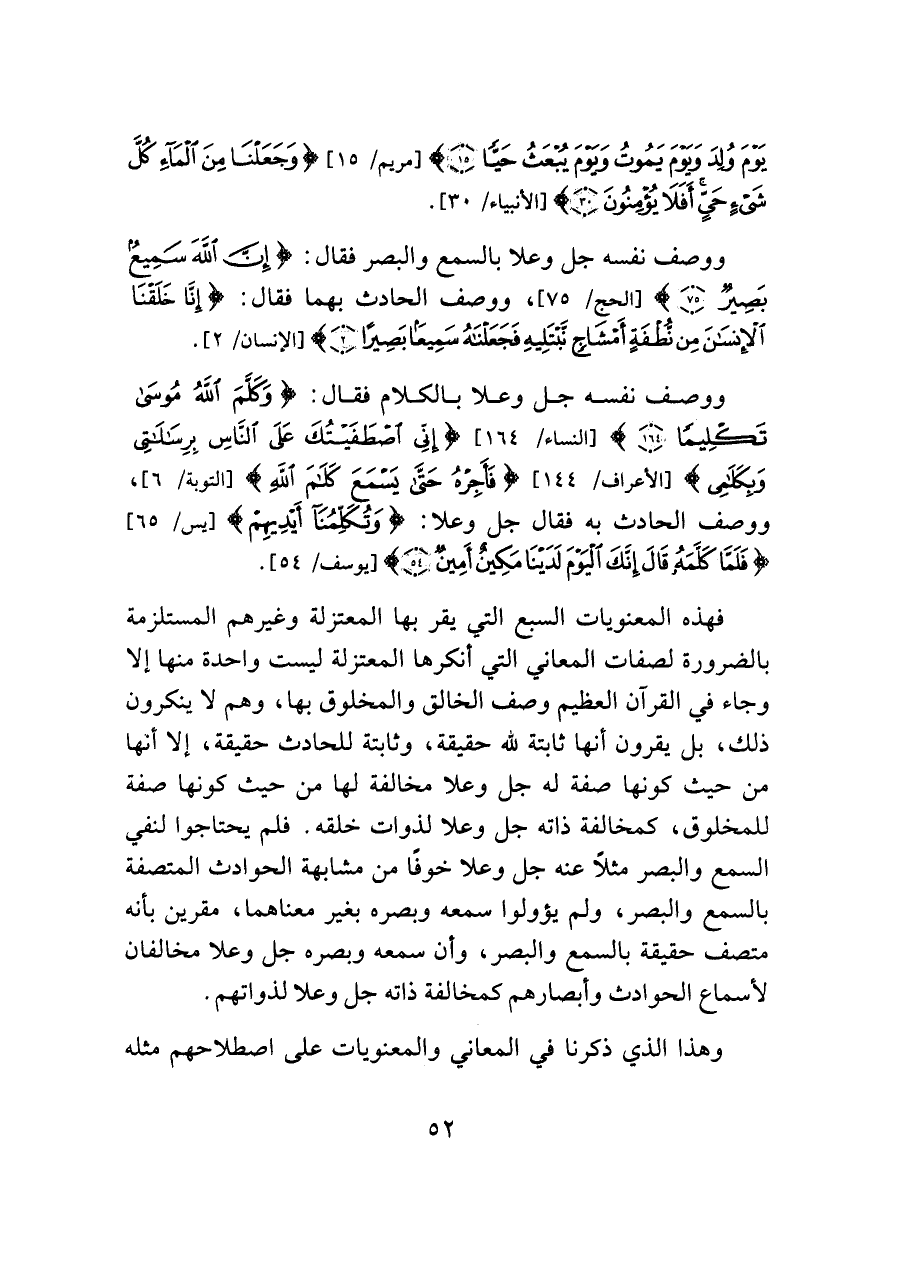 يَوْمَ وُلِدَ وَيَوْمَ يَمُوتُ وَيَوْمَ يُبْعَثُ حَيًّا ﴿١٥﴾ ﴾ [مريم/ ١٥] ﴿ وَجَعَلْنَا مِنَ ٱلْمَآءِ كُلَّ
شَىْءٍ حَيٍّ ۚ أَفَلَا يُؤْمِنُونَ ﴿٣٠﴾ ﴾ [الأنبياء/ ٣٠].
ووصف نفسه جل وعلا بالسمع والبصر فقال: ﴿ إِنَّ ٱللَّهَ سَمِيعٌۢ
بَصِيرٌ ﴿٧٥﴾ ﴾ [الحج/ ٧٥]، ووصف الحادث بهما فقال: ﴿ إِنَّا خَلَقْنَا
ٱلْإِنسَٰنَ مِن نُّطْفَةٍ أَمْشَاجٍ نَّبْتَلِيهِ فَجَعَلْنَٰهُ سَمِيعًۢا بَصِيرًا ﴿٢﴾ ﴾ [الإنسان/ ٢].
ووصف نفسه جل وعلا بالكلام فقال: ﴿ وَكَلَّمَ ٱللَّهُ مُوسَىٰ
تَكْلِيمًا ﴿١٦٤﴾ ﴾ [النساء/ ١٦٤] ﴿ إِنِّي ٱصْطَفَيْتُكَ عَلَى ٱلنَّاسِ بِرِسَٰلَٰتِي
وَبِكَلَٰمِي ﴾ [الأعراف/ ١٤٤] ﴿ فَأَجِرْهُ حَتَّىٰ يَسْمَعَ كَلَٰمَ ٱللَّهِ ﴾ [التوبة/ ٦]،
ووصف الحادث به فقال جل وعلا: ﴿ وَتُكَلِّمُنَآ أَيْدِيهِمْ ﴾ [يس/ ٦٥]
﴿ فَلَمَّا كَلَّمَهُۥ قَالَ إِنَّكَ ٱلْيَوْمَ لَدَيْنَا مَكِينٌ أَمِينٌ ﴿٥٤﴾ ﴾ [يوسف/ ٥٤].
فهذه المعنويات السبع التي يقر بها المعتزلة وغيرهم المستلزمة
بالضرورة لصفات المعاني التي أنكرها المعتزلة ليست واحدة منها إلا
وجاء في القرآن العظيم وصف الخالق والمخلوق بها، وهم لا ينكرون
ذلك، بل يقرون أنها ثابتة لله حقيقة، وثابتة للحادث حقيقة، إلا أنها
من حيث كونها صفة له جل وعلا مخالفة لها من حيث كونها صفة
للمخلوق، كمخالفة ذاته جل وعلا لذوات خلقه. فلم يحتاجوا لنفي
السمع والبصر مثلاً عنه جل وعلا خوفًا من مشابهة الحوادث المتصفة
بالسمع والبصر، ولم يؤولوا سمعه وبصره بغير معناهما، مقرين بأنه
متصف حقيقة بالسمع والبصر، وأن سمعه وبصره جل وعلا مخالفان
لأسماع الحوادث وأبصارهم كمخالفة ذاته جل وعلا لذواتهم.
وهذا الذي ذكرنا في المعاني والمعنويات على اصطلاحهم مثله
٥٢